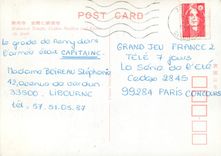 POST CARD
Le grade de Rémy dans
l'armée était CAPITAINE.
Madame BEIREAU Stéphanie
42, avenue de Verdun
33500 LIBOURNE
Tél: 57.51.05.87
GRAND JEU FRANCE 2
TELE 7 jours
La Série de l'Eté
Cedex 2845
99284 PARIS CONCOURS